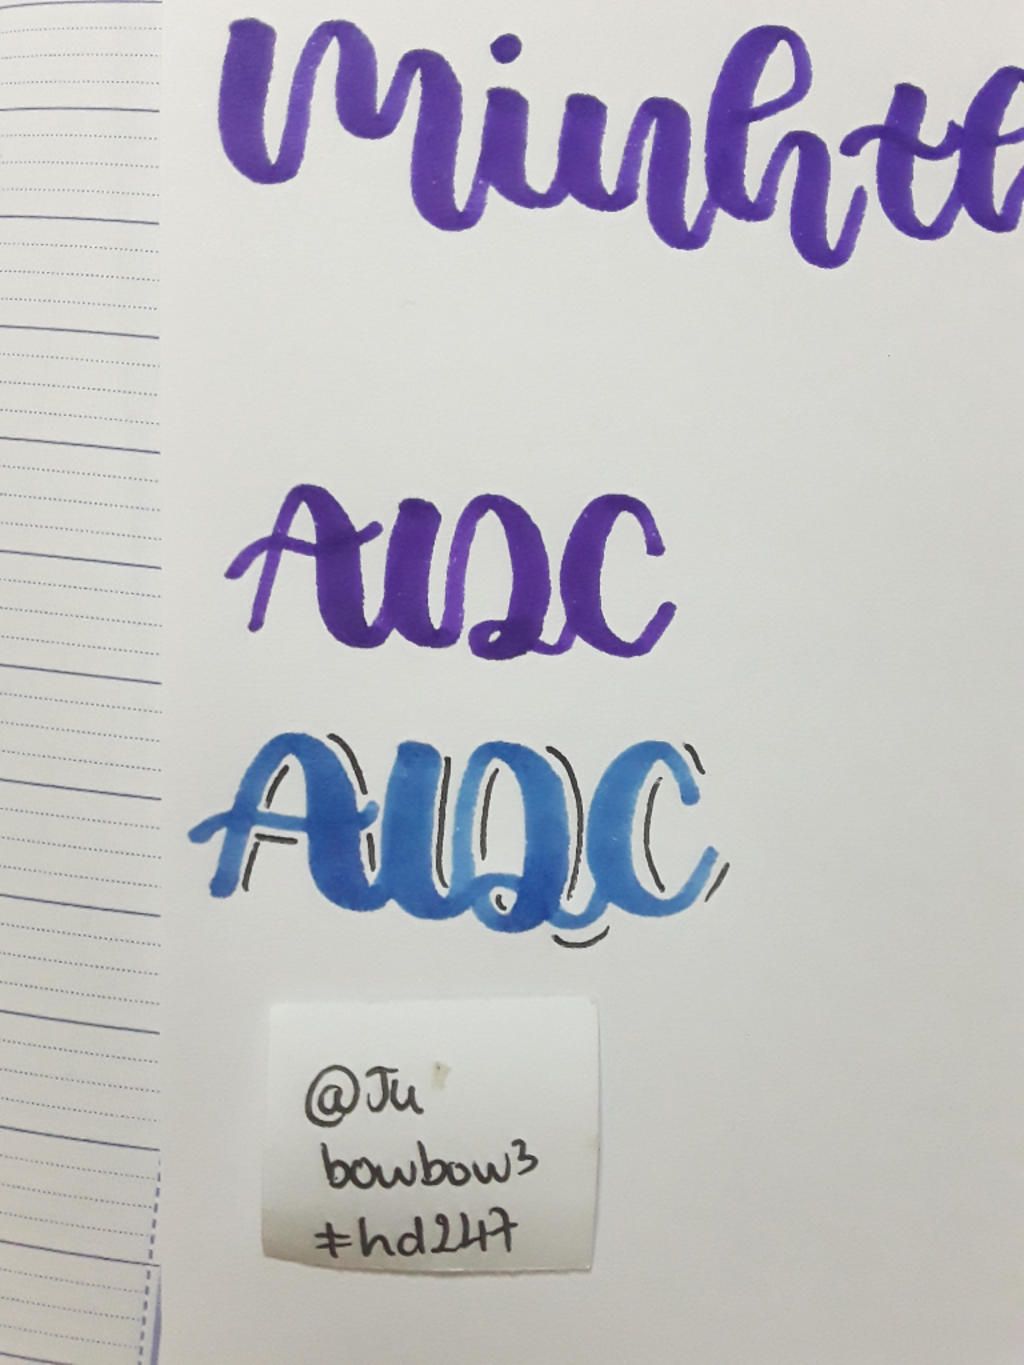 Minhth
AIDC
AIDC
@Ju
bowbow3
#hd247